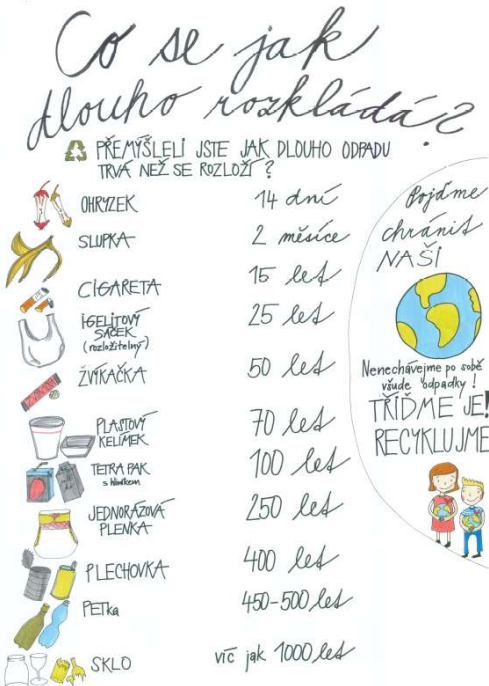 Co se jak
dlouho rozkládá?
PŘEMÝŠLELI JSTE JAK DLOUHO ODPADU
TRVÁ NEŽ SE ROZLOŽÍ?
OHRYZEK 14 dní
SLUPKA 2 měsíce
CIGARETA 15 let
IGELITOVÝ
SÁČEK
(rozložitelný) 25 let
ŽVÝKAČKA 50 let
PLASTOVÝ
KELÍMEK 70 let
TETRA PAK
s hliníkem 100 let
JEDNORÁZOVÁ
PLENKA 250 let
PLECHOVKA 400 let
PETka 450-500 let
SKLO víc jak 1000 let
Pojďme
chránit
NAŠI
Nenechávejme po sobě
všude odpadky!
TŘIĎME JE!
RECYKLUJME